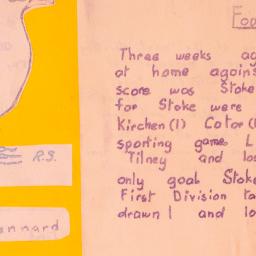 Foo
Three weeks ag
at home agains
score was Stoke
for Stoke were
Kirchen (1) Cator (
sporting game L
Tilney and los
only goal Stoke
First Division ta
drawn 1 and lo
R.S.
ennard